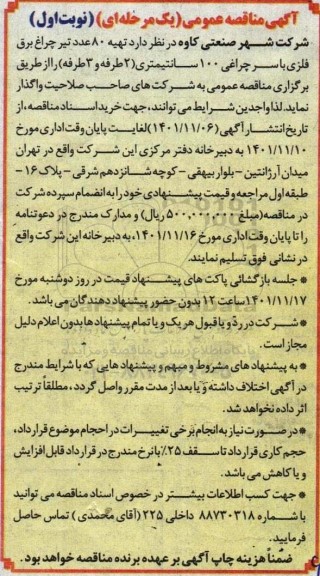 آگهی مناقصه عمومی (یک مرحله ای) (نوبت اول)
شرکت شهر صنعتی کاوه در نظر دارد تهیه ۸۰ عدد تیر چراغ برق
فلزی با سر چراغی ۱۰۰ سانتیمتری (۲ طرفه و ۳ طرفه) را از طریق
برگزاری مناقصه عمومی به شرکت های صاحب صلاحیت واگذار
نماید. لذا واجدین شرایط می توانند، جهت خرید اسناد مناقصه، از
تاریخ انتشار آگهی (۱۴۰۱/۱۱/۰۶) لغایت پایان وقت اداری مورخ
۱۴۰۱/۱۱/۱۰ به دبیرخانه دفتر مرکزی این شرکت واقع در تهران
میدان آرژانتین - بلوار بیهقی - کوچه شانزدهم شرقی - پلاک ۱۶ -
طبقه اول مراجعه و قیمت پیشنهادی خود را به انضمام سپرده شرکت
در مناقصه (مبلغ ۵۰۰,۰۰۰,۰۰۰ ریال) و مدارک مندرج در دعوتنامه
را تا پایان وقت اداری مورخ ۱۴۰۱/۱۱/۱۶، به دبیرخانه این شرکت واقع
در نشانی فوق تسلیم نمایند.
* جلسه بازگشائی پاکت های پیشنهاد قیمت در روز دوشنبه مورخ
۱۴۰۱/۱۱/۱۷ ساعت ۱۲ بدون حضور پیشنهاد دهندگان می باشد.
* شرکت در رد و یا قبول هر یک و یا تمام پیشنهادها بدون اعلام دلیل
مجاز است.
* به پیشنهادهای مشروط و مبهم و پیشنهادهایی که با شرایط مندرج
در آگهی اختلاف داشته و یا بعد از مدت مقرر واصل گردد، مطلقا ترتیب
اثر داده نخواهد شد.
* در صورت نیاز به انجام برخی تغییرات در احجام موضوع قرارداد،
حجم کاری قرارداد تا سقف ۲۵٪ با نرخ مندرج در قرارداد قابل افزایش
و یا کاهش می باشد.
* جهت کسب اطلاعات بیشتر در خصوص اسناد مناقصه می توانید
با شماره ۸۸۷۳۰۳۱۸ داخلی ۲۲۵ (آقای محمدی) تماس حاصل
فرمایید.
ضمناً هزینه چاپ آگهی بر عهده برنده مناقصه خواهد بود.